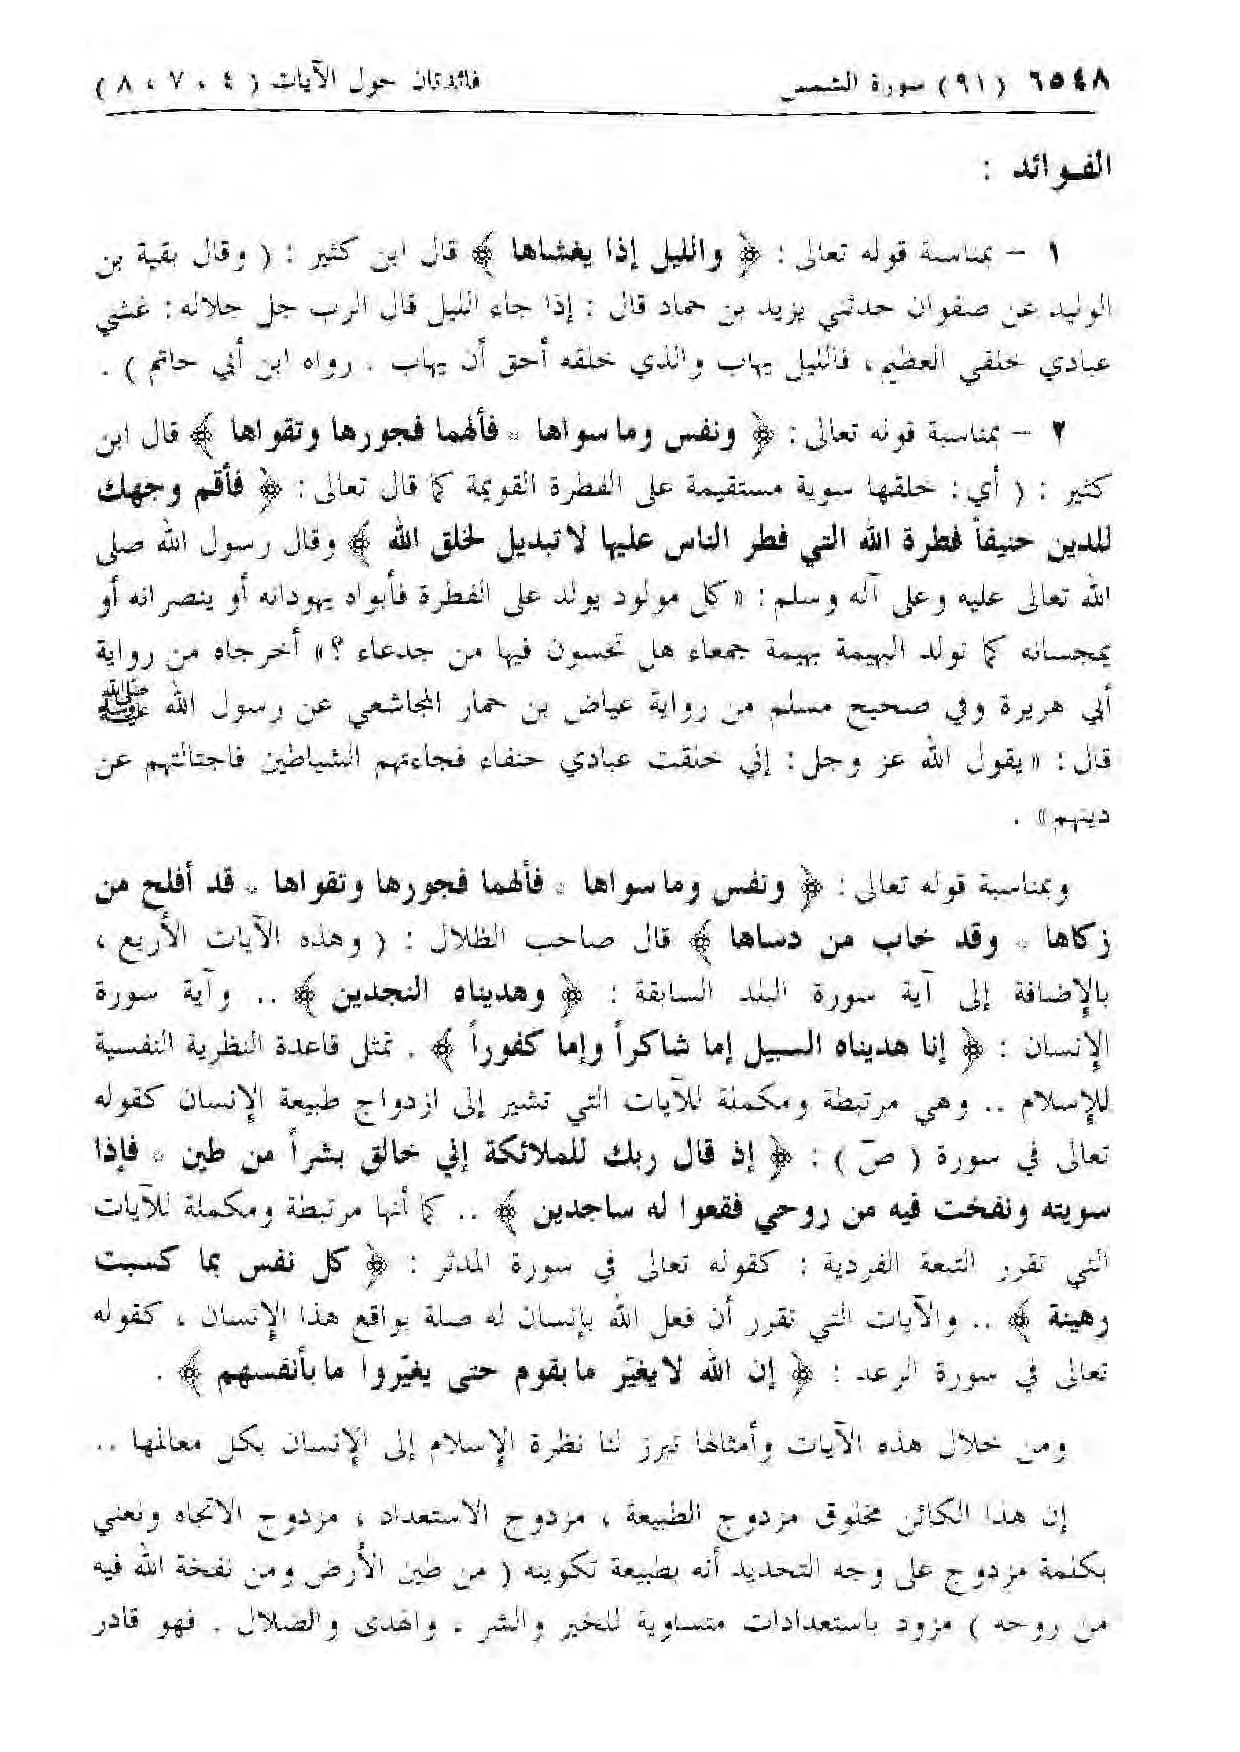 ٦٥٤٨ (٩١) سورة الشمس فائدتان حول الآيات (٤ ، ٧ ، ٨)
الفوائد :
١ - بمناسبة قوله تعالى : ﴿ والليل إذا يغشاها ﴾ قال ابن كثير : ( وقال بقية بن
الوليد عن صفوان حدثني يزيد بن حماد قال : إذا جاء الليل قال الرب جل جلاله : غشي
عبادي خلقي العظيم ، فالليل يهاب والذي خلقه أحق أن يهاب . رواه ابن أبي حاتم ) .
٢ - بمناسبة قوله تعالى : ﴿ ونفس وما سواها * فألهمها فجورها وتقواها ﴾ قال ابن
كثير : ( أي : خلقها سوية مستقيمة على الفطرة القويمة كما قال تعالى : ﴿ فأقم وجهك
للدين حنيفاً فطرة الله التي فطر الناس عليها لا تبديل لخلق الله ﴾ وقال رسول الله صلى
الله تعالى عليه وعلى آله وسلم : « كل مولود يولد على الفطرة فأبواه يهودانه أو ينصرانه أو
يمجسانه كما تولد البهيمة بهيمة جمعاء هل تحسون فيها من جدعاء ؟ » أخرجاه من رواية
أبي هريرة وفي صحيح مسلم من رواية عياض بن حمار المجاشعي عن رسول الله ﷺ
قال : « يقول الله عز وجل : إني خلقت عبادي حنفاء فجاءتهم الشياطين فاجتالتهم عن
دينهم » .
وبمناسبة قوله تعالى : ﴿ ونفس وما سواها * فألهمها فجورها وتقواها * قد أفلح من
زكاها * وقد خاب من دساها ﴾ قال صاحب الظلال : ( وهذه الآيات الأربع ،
بالإضافة إلى آية سورة البلد السابقة : ﴿ وهديناه النجدين ﴾ .. وآية سورة
الإنسان : ﴿ إنا هديناه السبيل إما شاكراً وإما كفوراً ﴾ . تمثل قاعدة النظرية النفسية
للإسلام .. وهي مرتبطة ومكملة للآيات التي تشير إلى ازدواج طبيعة الإنسان كقوله
تعالى في سورة ( صٓ ) : ﴿ إذ قال ربك للملائكة إني خالق بشراً من طين * فإذا
سويته ونفخت فيه من روحي فقعوا له ساجدين ﴾ .. كما أنها مرتبطة ومكملة للآيات
التي تقرر التبعة الفردية : كقوله تعالى في سورة المدثر : ﴿ كل نفس بما كسبت
رهينة ﴾ .. والآيات التي تقرر أن فعل الله بإنسان له صلة بواقع هذا الإنسان ، كقوله
تعالى في سورة الرعد : ﴿ إن الله لا يغيّر ما بقوم حتى يغيّروا ما بأنفسهم ﴾ .
ومن خلال هذه الآيات وأمثالها تبرز لنا نظرة الإسلام إلى الإنسان بكل معالمها ..
إن هذا الكائن مخلوق مزدوج الطبيعة ، مزدوج الاستعداد ، مزدوج الاتجاه ونعني
بكلمة مزدوج على وجه التحديد أنه بطبيعة تكوينه ( من طين الأرض ومن نفخة الله فيه
من روحه ) مزود باستعدادات متساوية للخير والشر ، والهدى والضلال . فهو قادر